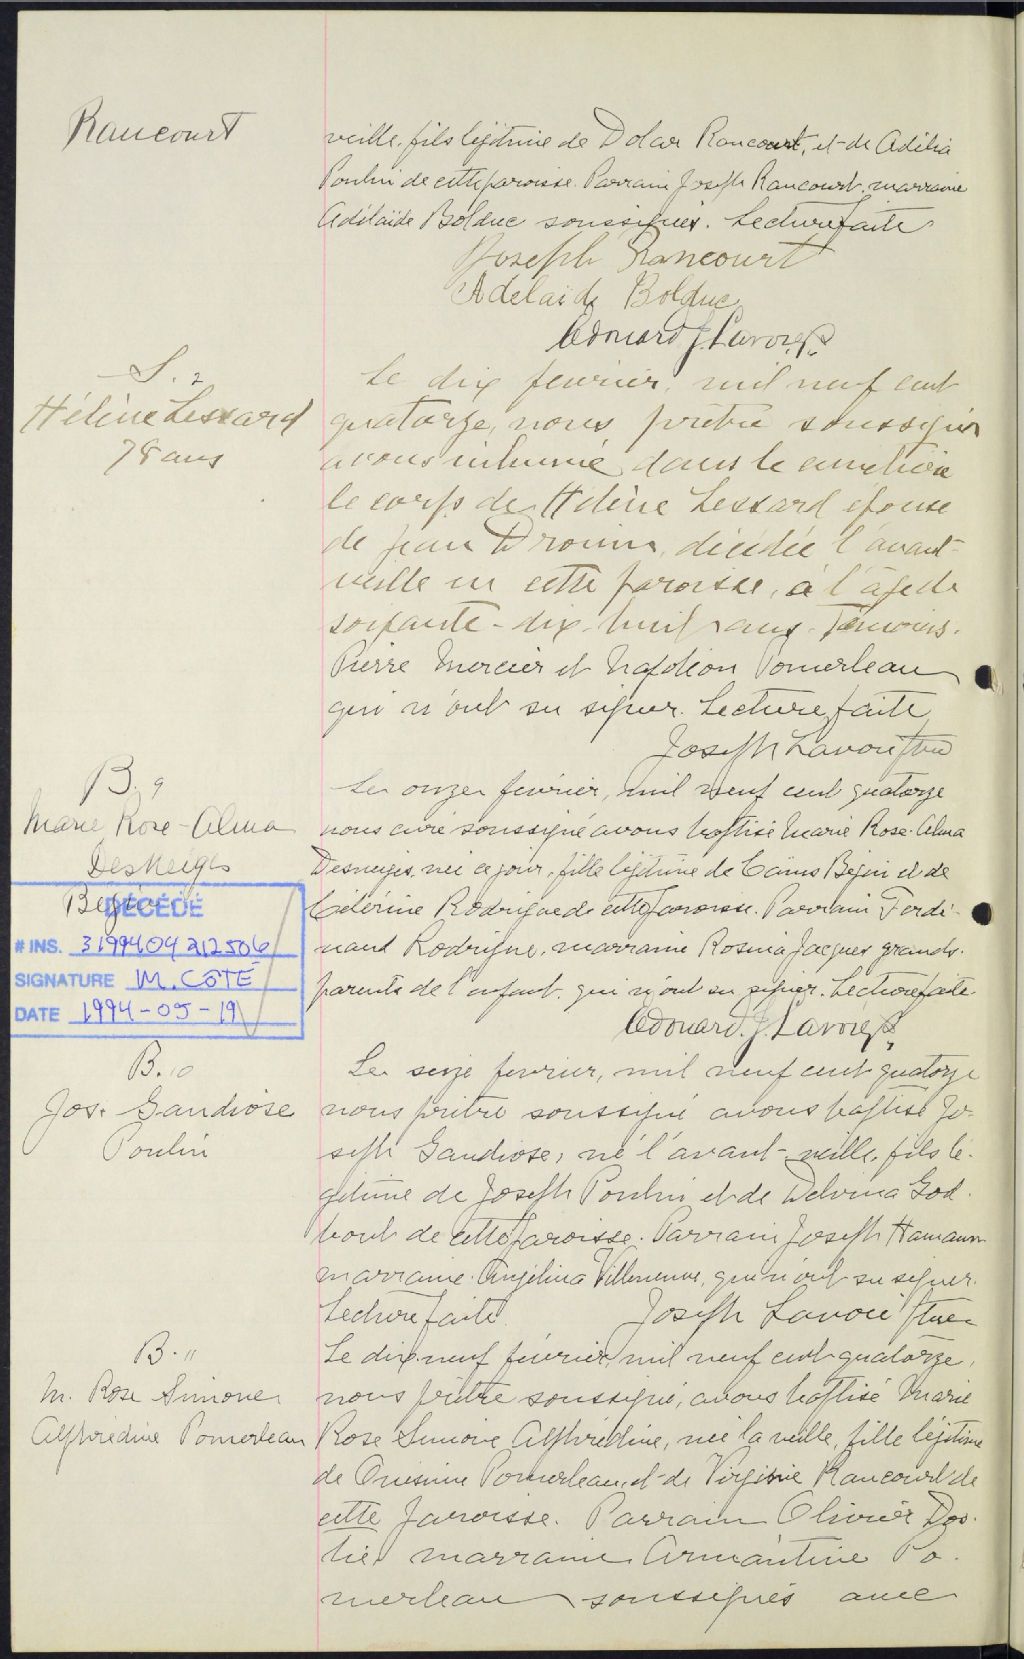 Rancourt
veille, fils légitime de Dolar Rancourt, et de Adélia
Poulin de cette paroisse. Parrain Joseph Rancourt, marraine
Adélaïde Bolduc soussignés. Lecture faite
Joseph Rancourt
Adelaïde Bolduc
Edouard J. Lavoie, P.
S. 2
Hélène Lessard
78 ans
Le dix fevrier, mil neuf cent
quatorze, nous prêtre soussigné
avons inhumé dans le cimetière
le corps de Hélène Lessard épouse
de Jean Drouin, décédée l'avant-
veille en cette paroisse, à l'âge de
soixante-dix-huit ans. Témoins.
Pierre Mercier et Napoléon Pomerleau
qui n'ont su signer. Lecture faite
Joseph Lavoie ptre
B. 9
Marie Rose-Alma
DesNeiges
Bégin
DÉCÉDÉ
# INS. 3199404212506
SIGNATURE M. COTÉ
DATE 1994-05-19
Le onze février, mil neuf cent quatorze
nous curé soussigné avons baptisé Marie Rose-Alma
Desneiges, née ce jour, fille légitime de Bégin et de
Rodrigue de cette paroisse. Parrain Ferdi-
nand Rodrigue, marraine Rosina Jacques grands-
parents de l'enfant, qui n'ont su signer. Lecture faite.
Edouard J. Lavoie, P.
B. 10
Jos. Gaudiose
Poulin
Le seize fevrier, mil neuf cent quatorze
nous prêtre soussigné avons baptisé Jo-
seph Gaudiose, né l'avant-veille, fils lé-
gitime de Joseph Poulin et de Delvina God-
bout de cette paroisse. Parrain Joseph Hamann
marraine Angélina Villeneuve, qui n'ont su signer.
Lecture faite. Joseph Lavoie ptre
B. 11
M. Rose Simone
Alphrédine Pomerleau
Le dix-neuf février, mil neuf cent quatorze,
nous prêtre soussigné, avons baptisé Marie
Rose Simone Alphrédine, née la veille, fille légitime
de Onésime Pomerleau, et de Virginie Rancourt de
cette paroisse. Parrain Olivier Dos-
tie marraine Armantine Po-
merleau soussignés avec